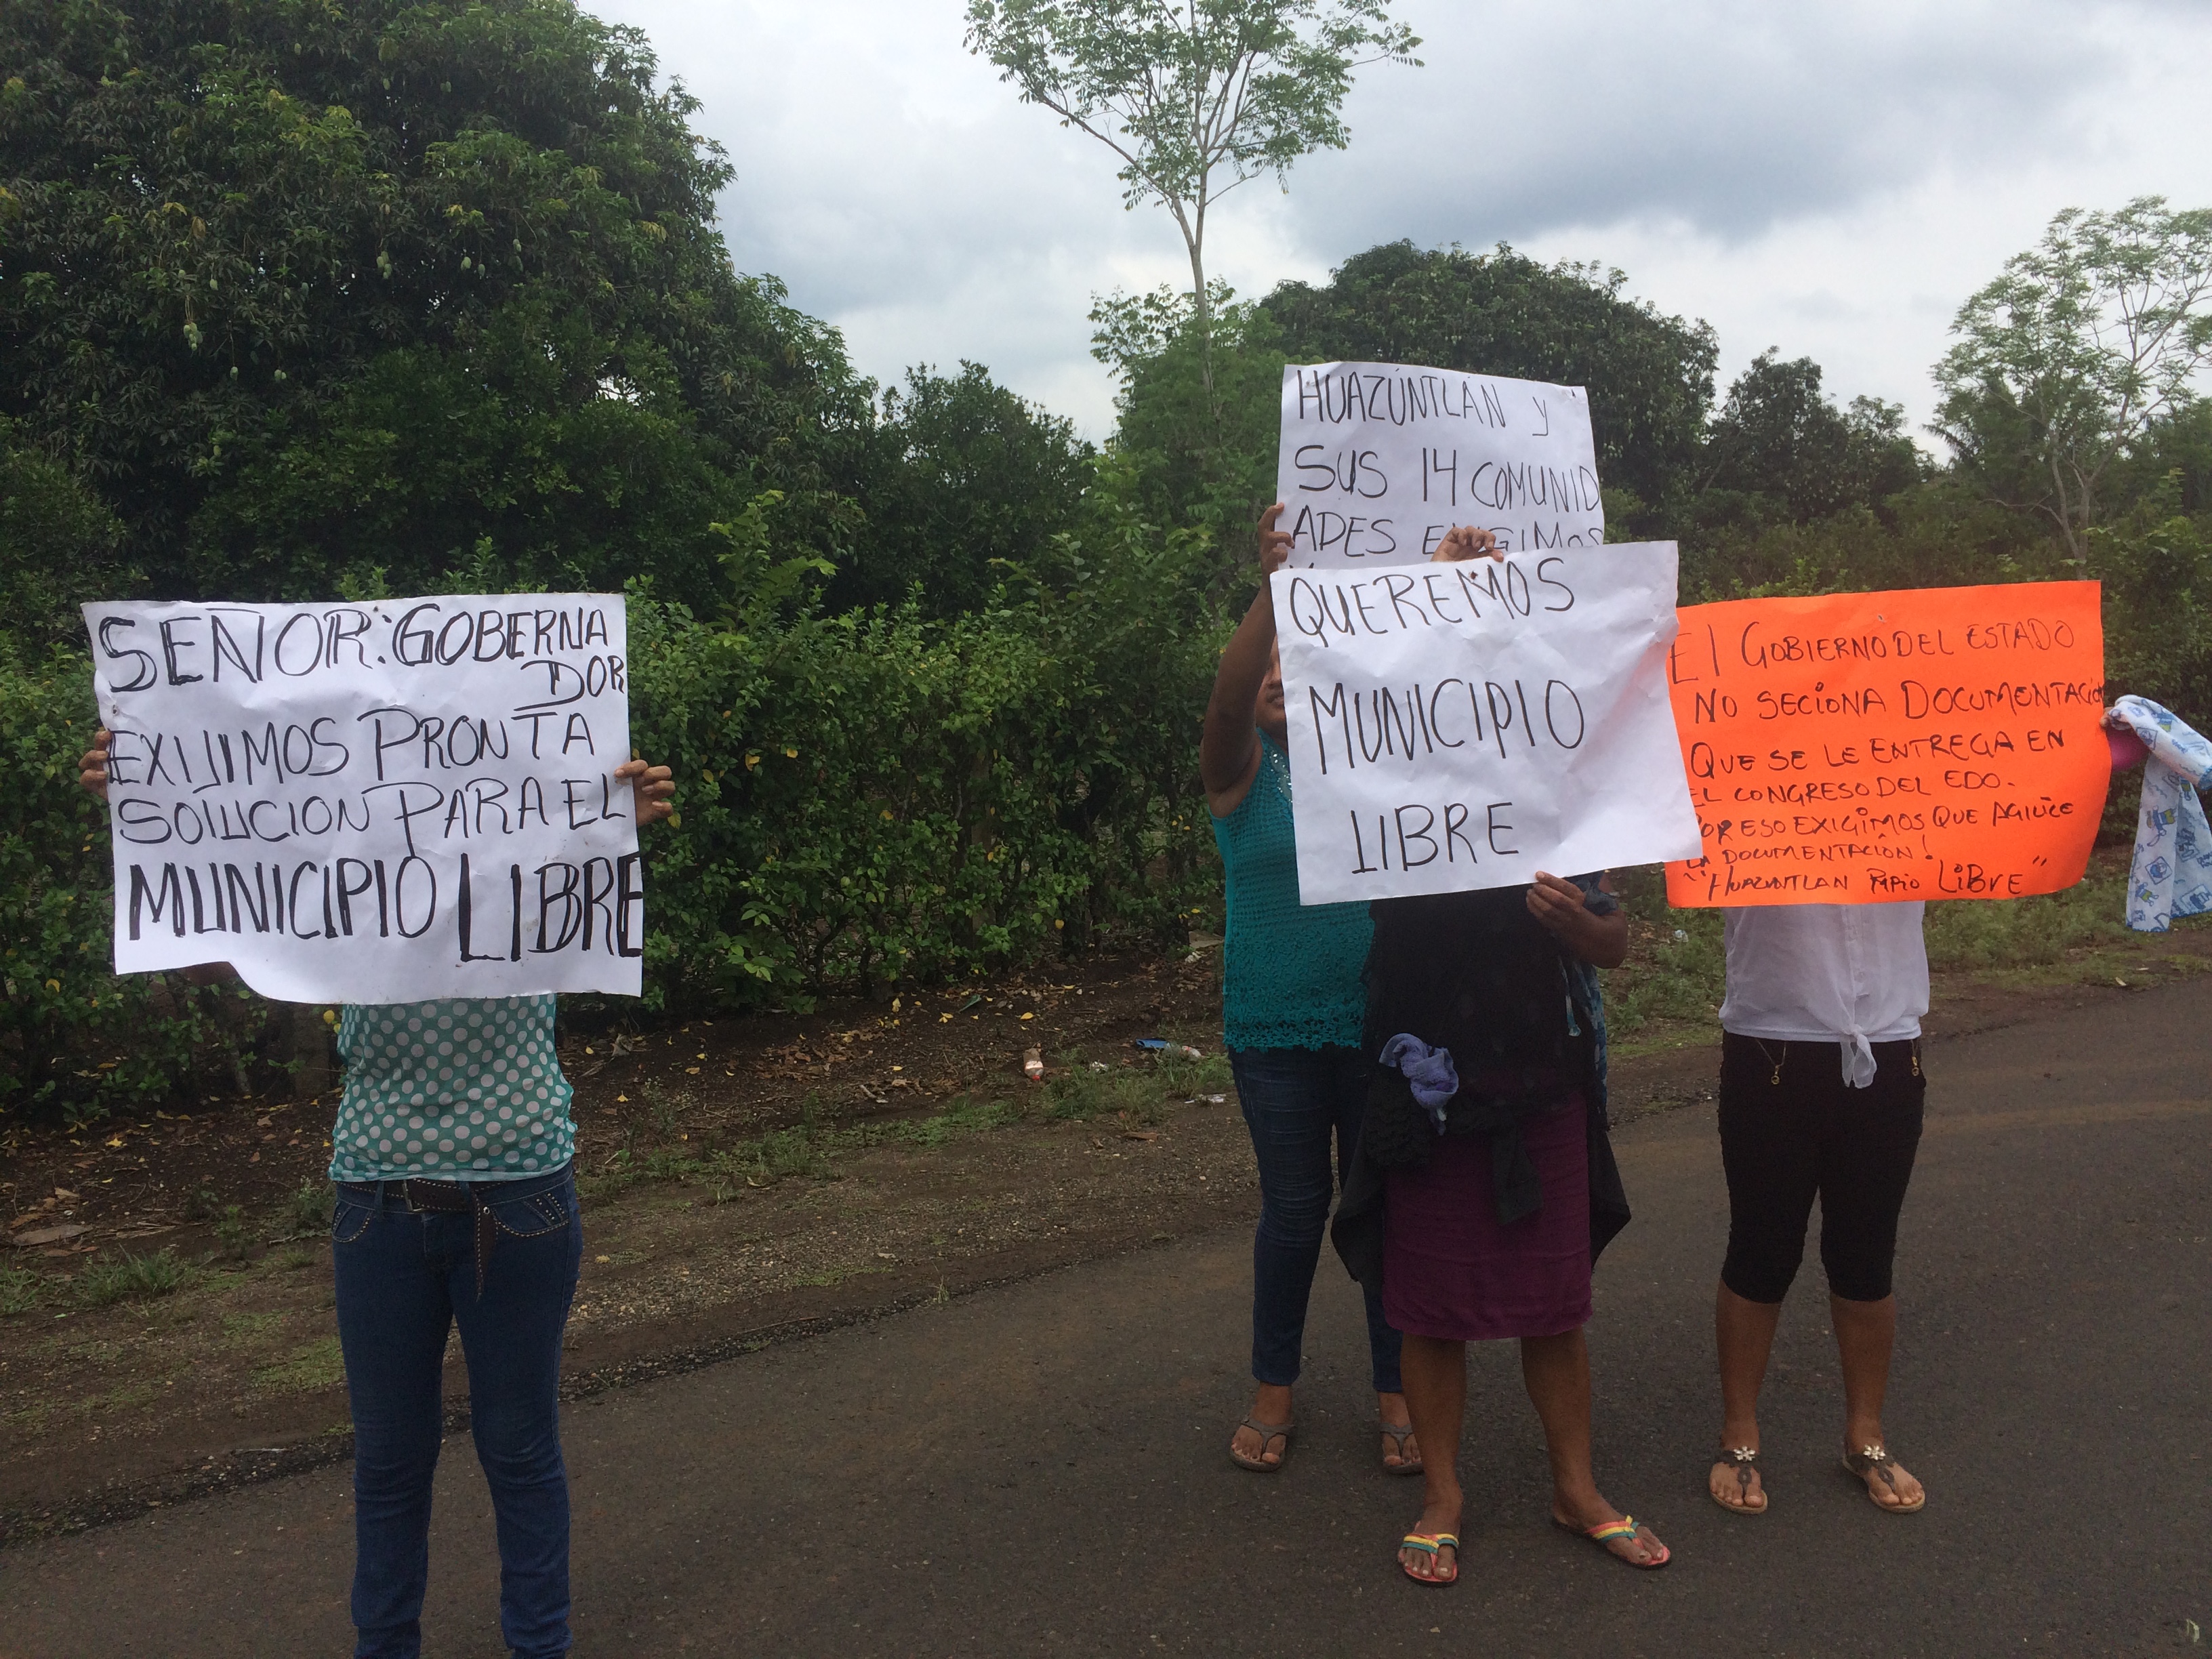 SEÑOR: GOBERNA
DOR
EXIJIMOS PRONTA
SOLUCION PARA EL
MUNICIPIO LIBRE
HUAZÚNTLÁN y
SUS 14 COMUNID
ADES EXIGIMOS
QUEREMOS
MUNICIPIO
LIBRE
El GOBIERNO DEL ESTADO
NO SECIONA DOCUMENTACIÓN
QUE SE LE ENTREGA EN
EL CONGRESO DEL EDO.
POR ESO EXIGIMOS QUE AGILICE
LA DOCUMENTACIÓN!
"HUAZUNTLAN MPIO LiBRE"